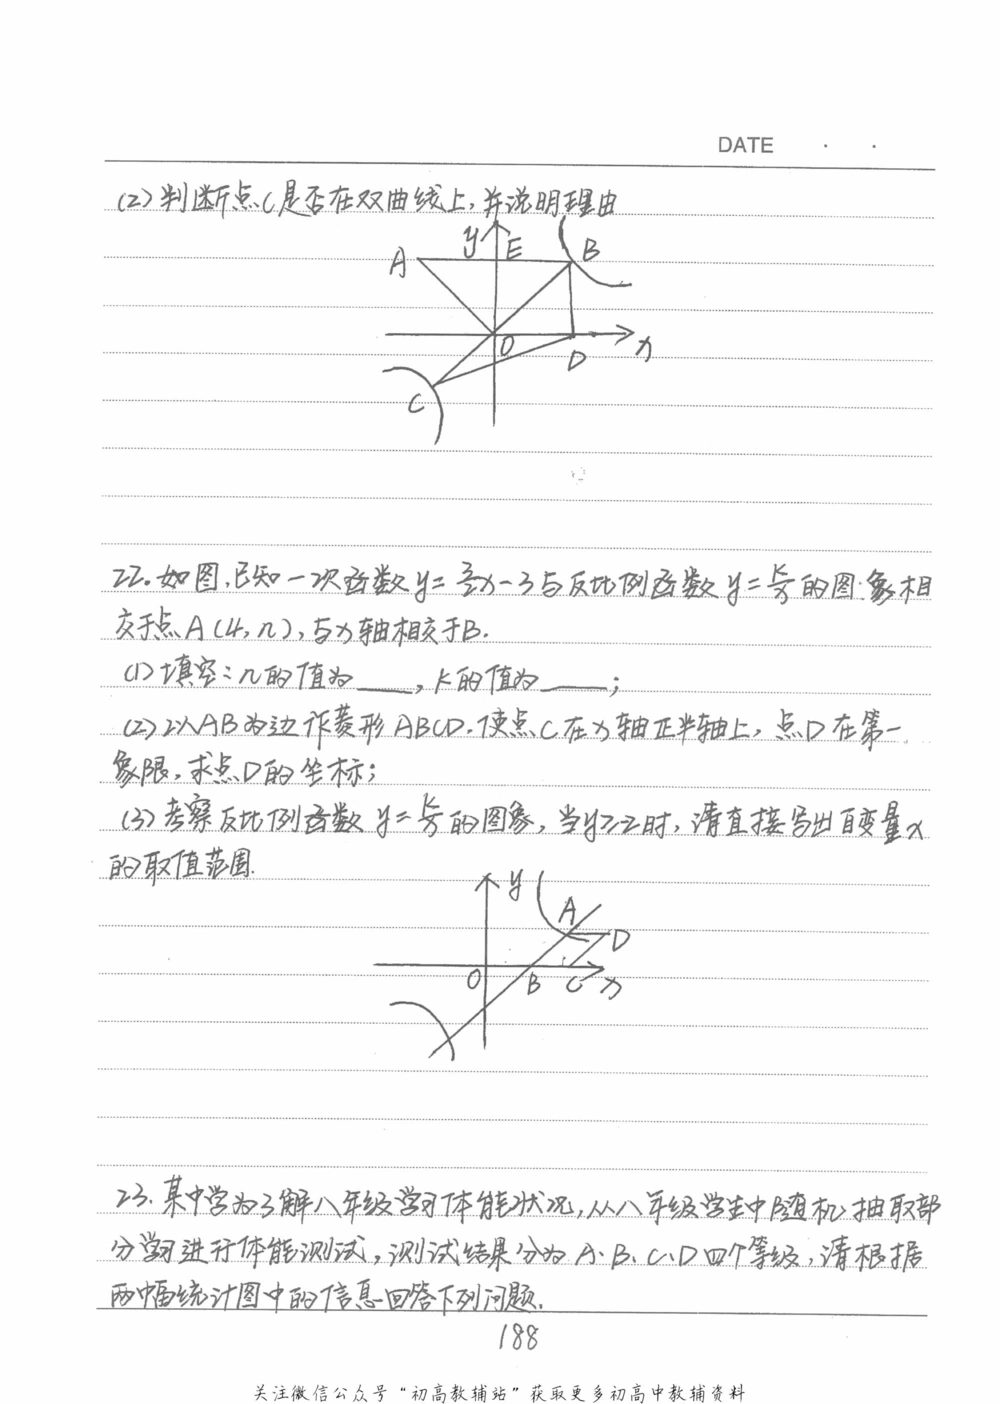 DATE · ·
(2)判断点C是否在双曲线上,并说明理由
y E B
A
O D x
C
22.如图,已知一次函数y=3/2x-3与反比例函数y=k/x的图象相
交于点A(4,n),与x轴相交于B.
(1)填空:n的值为____,k的值为____;
(2)以AB为边作菱形ABCD.使点C在x轴正半轴上,点D在第一
象限,求点D的坐标;
(3)考察反比例函数y=k/x的图象,当y≥-2时,请直接写出自变量x
的取值范围.
y
A
D
O B C x
23.某中学为了解八年级学习体能状况,从八年级学生中随机抽取部
分学习进行体能测试,测试结果分为A.B、C、D四个等级,请根据
两幅统计图中的信息回答下列问题.
188
关注微信公众号“初高教辅站”获取更多初高中教辅资料